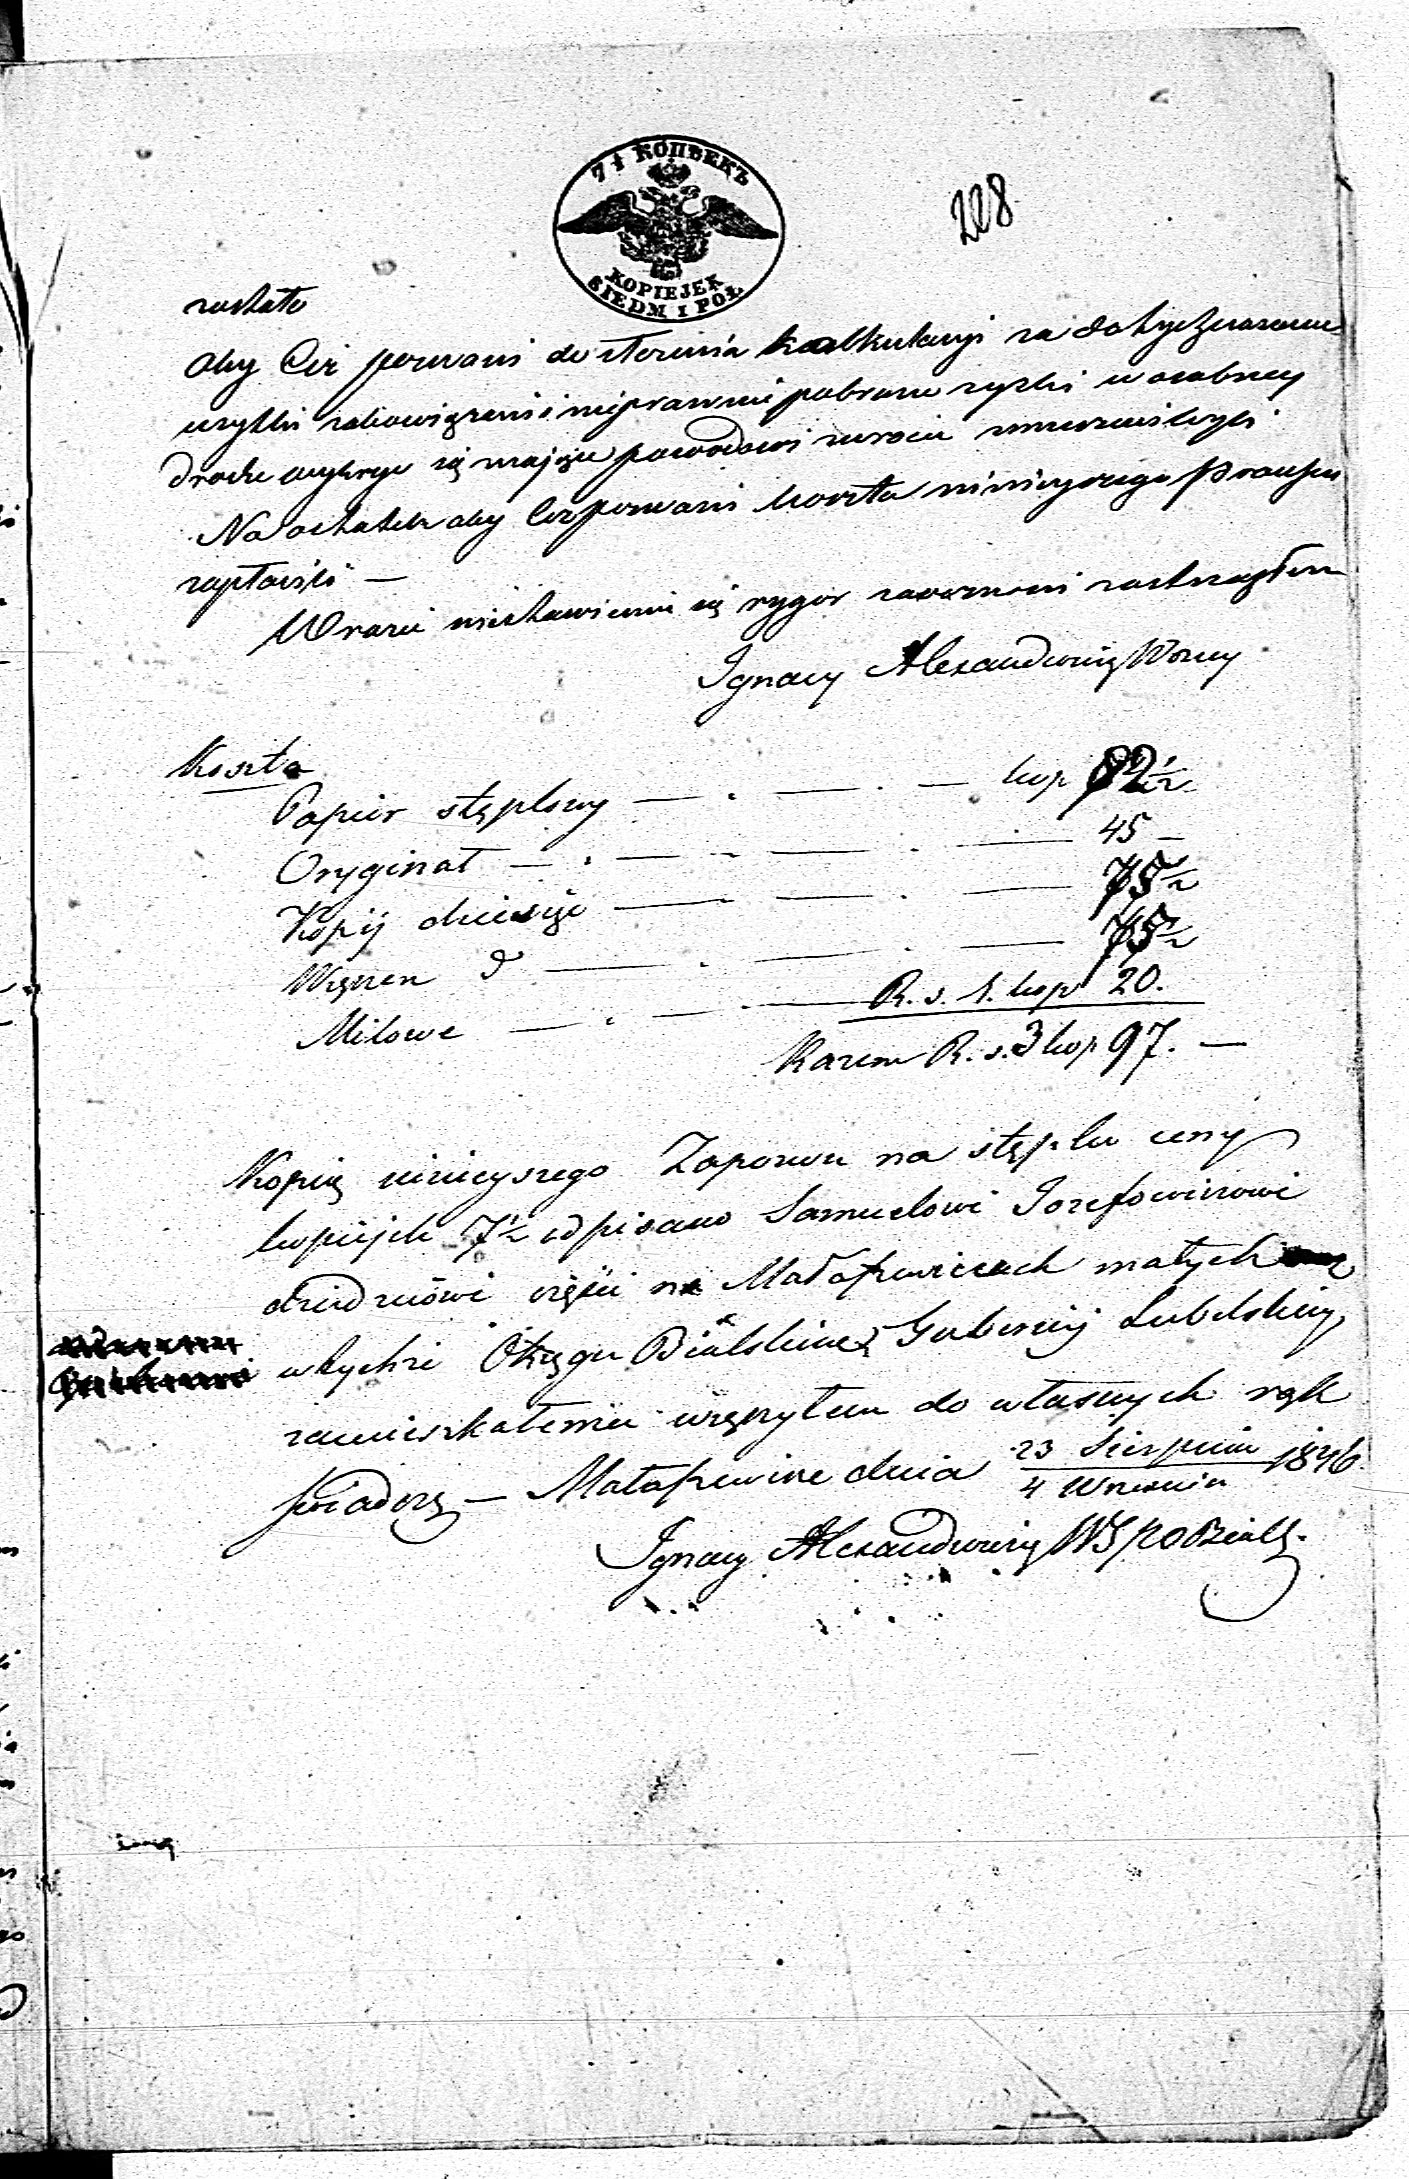 7½ КОПѢЕКЪ
KOPIEJEK
SIEDM I PÓŁ
228
została
Aby Ciż pozwani do złożenia kalkulacyi za dotychczasowe
użytki zobowiązani i nieprawnie pobrane zyski w osobney
drodze wykryć się mające powodowi zwrócić
Na ostatek aby Ciż pozwani koszta ninieyszego Processu
zapłacili —
W razie niestawienia się rygor zaoczności zastrzegłem
Ignacy Alexandrowicz Wozny
Koszta
Papier stęplowy — kop 82½
Oryginał — 45 —
Kopij dziesięć — 75½
Wręczen d — 75½
Milowe — R. s. 1. kop 20.
Razem R. s. 3 kop 97. —
Kopię ninieyszego Zapozwu na stęplu ceny
kopiejek 7½ odpisano Samuelowi Jozefowiczowi
dziedzicowi części na Małaszewiczach małych
w tychże Okręgu Bialskim Gubernij Lubelskiey
zamieszkałemu wręczyłem do własnych rąk
świadczę — Małaszewicze dnia 23 Sierpnia / 4 Września 1846
Ignacy Alexandrowicz WSPoBialS.